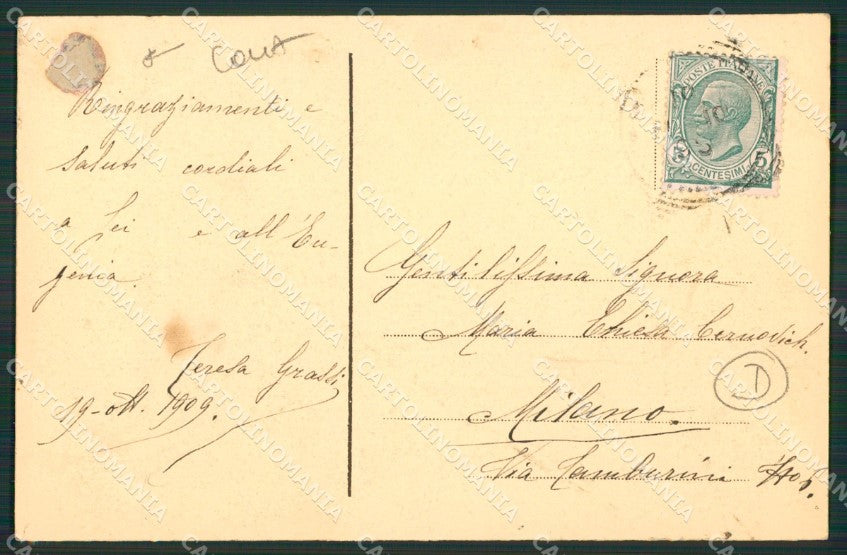 COLLA
Ringraziamenti e
saluti cordiali
a Lei e all'Eu-
genia.
Teresa Grassi
19-ott. 1909.
POSTE ITALIANE
5 CENTESIMI 5
Gentilissima Signora
Maria Chiesa Cernovich.
Milano.
Via Tamburini
D
CARTOLINOMANIA